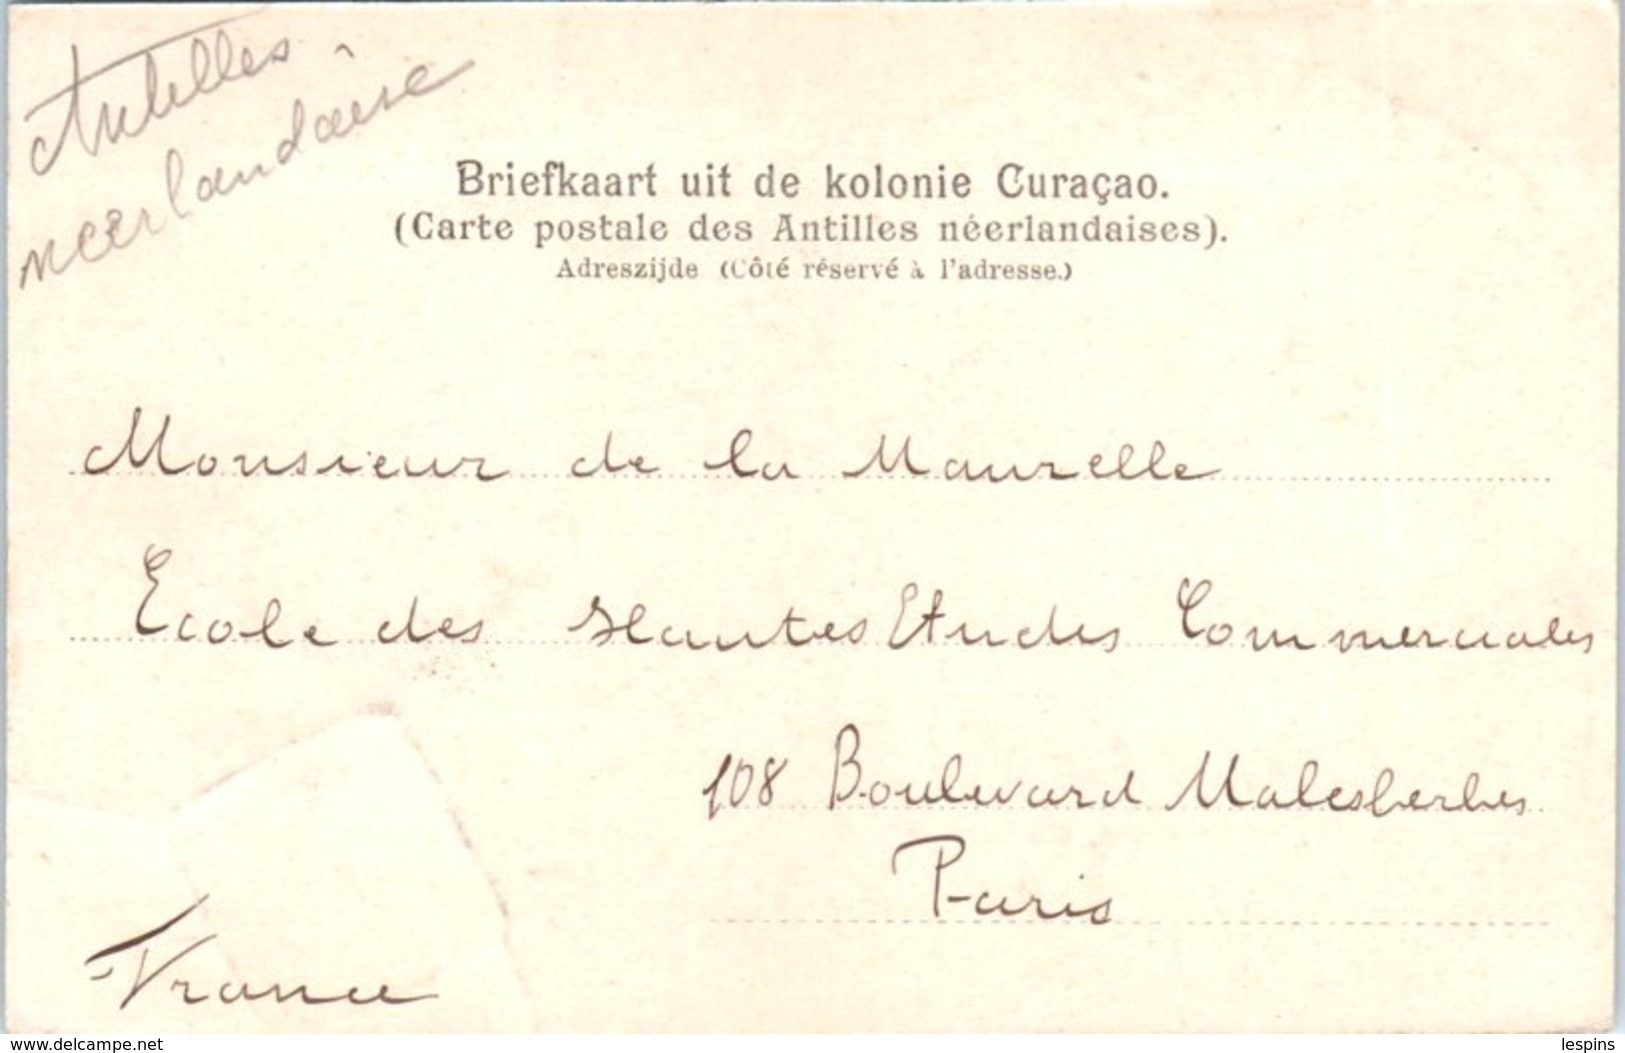 Antilles
néerlandaise
Briefkaart uit de kolonie Curaçao.
(Carte postale des Antilles néerlandaises).
Adreszijde (Côté réservé à l'adresse.)
Monsieur de la Maurelle
Ecole des Hautes Etudes Commerciales
108 Boulevard Malesherbes
Paris
France
www.delcampe.net
lespins